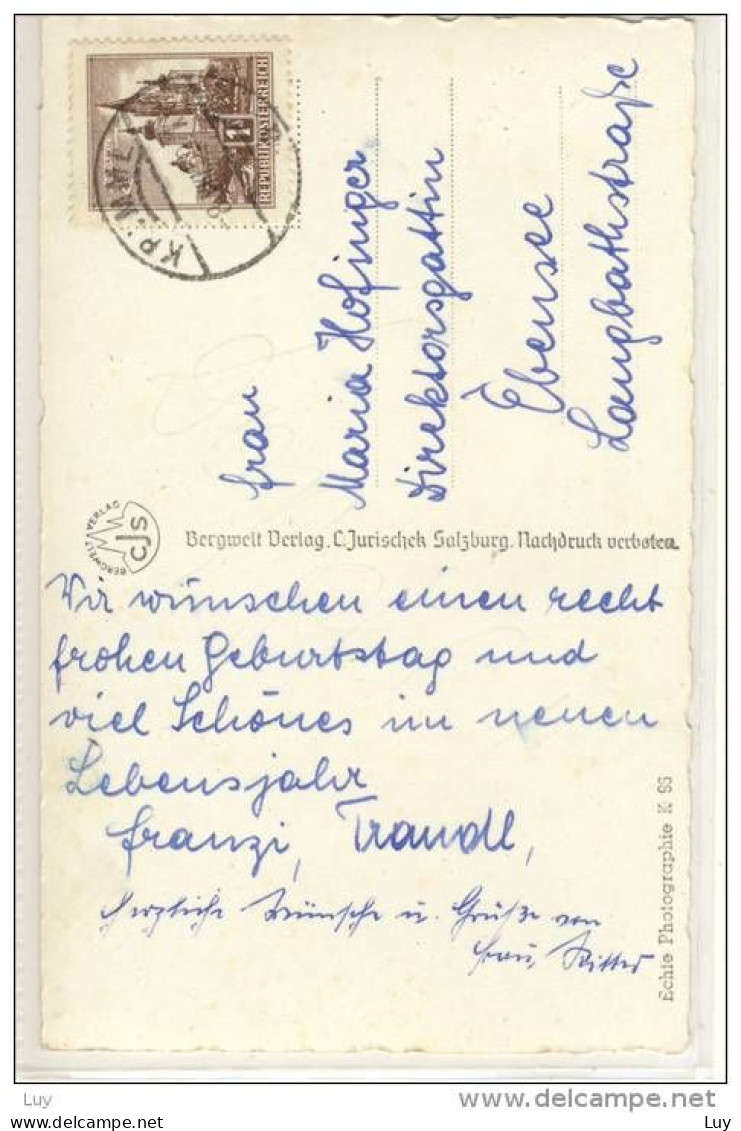 1
REPUBLIK ÖSTERREICH
KRIMML
Frau
Maria Hofinger
Direktorsgattin
Ebensee
Langbathstraße
BERGWELT VERLAG
CJS
Bergwelt Verlag. C. Jurischek Salzburg. Nachdruck verboten.
Wir wünschen einen recht
frohen Geburtstag und
viel Schönes im neuen
Lebensjahr
Franzi, Traudl,
herzliche Wünsche u. Grüße von
Ritter
Echte Photographie K 86
Luy
delcampe.net
Luy